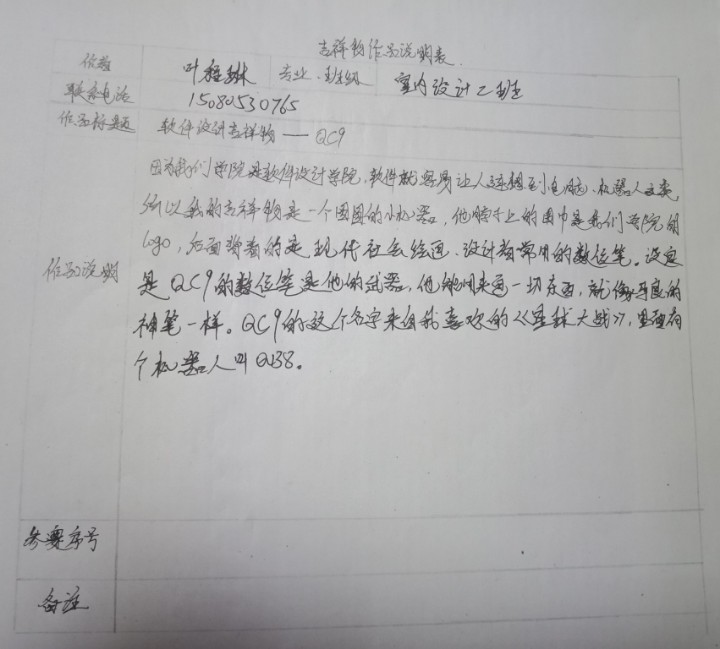 吉祥物作品说明表
作者 叶 琳 专业、班级 室内设计乙班
联系电话 15080530765
作品标题 软件设计吉祥物——QC9
因为我们学院是软件设计学院,软件就容易让人连想到电脑、机器人之类
所以我的吉祥物是一个圆圆的小机器,他脖子上的围巾是我们学院的
logo,后面背着的是现代社会绘画、设计者常用的数位笔。设定
作品说明 是QC9的数位笔是他的武器,他能用来画一切东西,就像马良的
神笔一样。QC9的这个名字来自我喜欢的《星球大战》,里面有
个机器人叫
参赛序号
备注